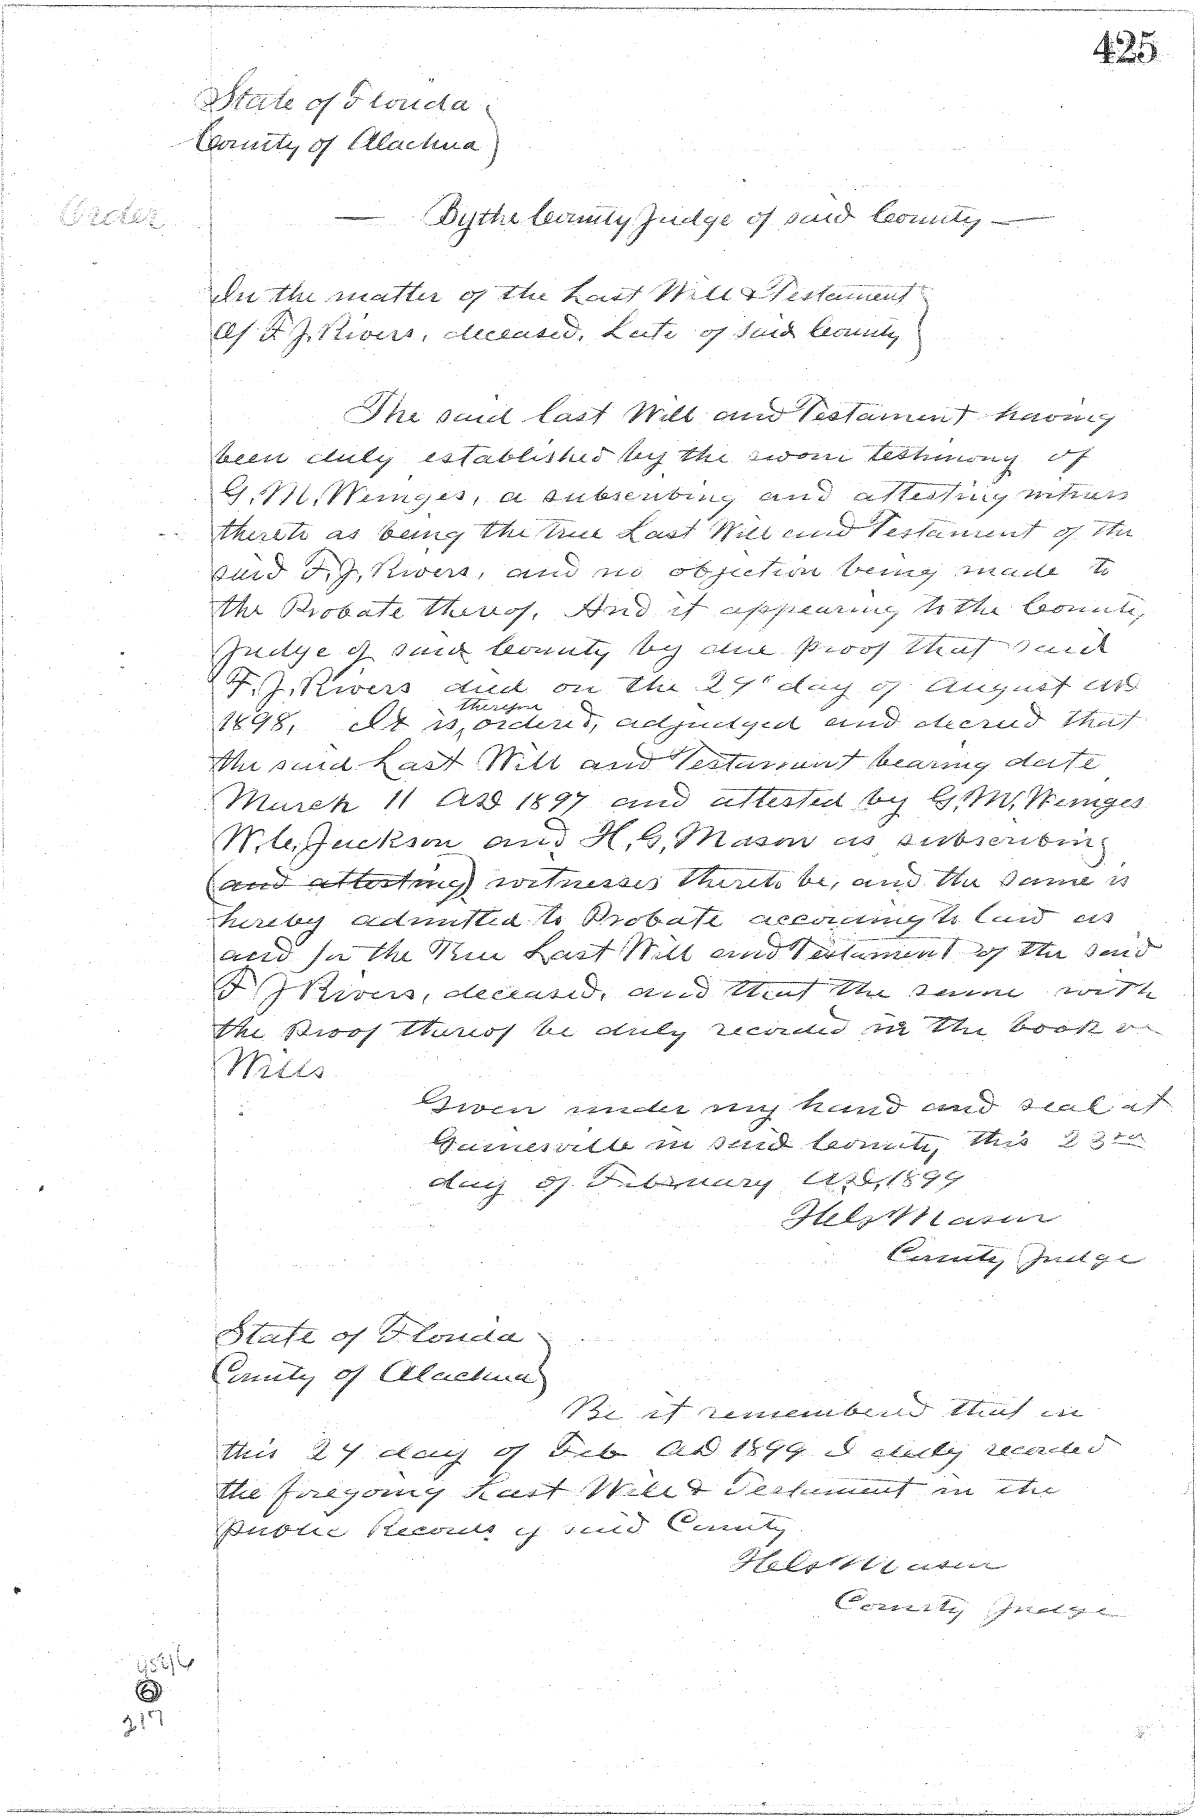 425
State of Florida
County of Alachua
Order
— By the County Judge of said County —
In the matter of the Last Will & Testament
Of F. J. Rivers, deceased, Late of said County
The said last Will and Testament having
been duly established by the sworn testimony of
G. M. Wemges, a subscribing and attesting witness
thereto as being the true Last Will and Testament of the
said F. J. Rivers, and no objection being made to
the Probate thereof, And it appearing to the County
Judge of said County by due proof that said
F. J. Rivers died on the day of August AD
therefore
1898, It is, ordered, adjudged and decreed that
the said Last Will and Testament bearing date
March 11 AD 1897 and attested by G. M. Wemges
W. C. Jackson and H. G. Mason as subscribing
(and attesting) witnesses thereto be, and the same is
hereby admitted to Probate according to law as
and for the True Last Will and Testament of the said
F J Rivers, deceased, and that the same with
the Proof thereof be duly recorded in the book of
Wills
Given under my hand and seal at
Gainesville in said County this 23rd
day of February A.D. 1899
Mason
County Judge
State of Florida
County of Alachua
Be it remembered that on
this 24 day of Feb AD 1899 I duly recorded
the foregoing Last Will & Testament in the
Public Records of said County
Mason
County Judge
6
217